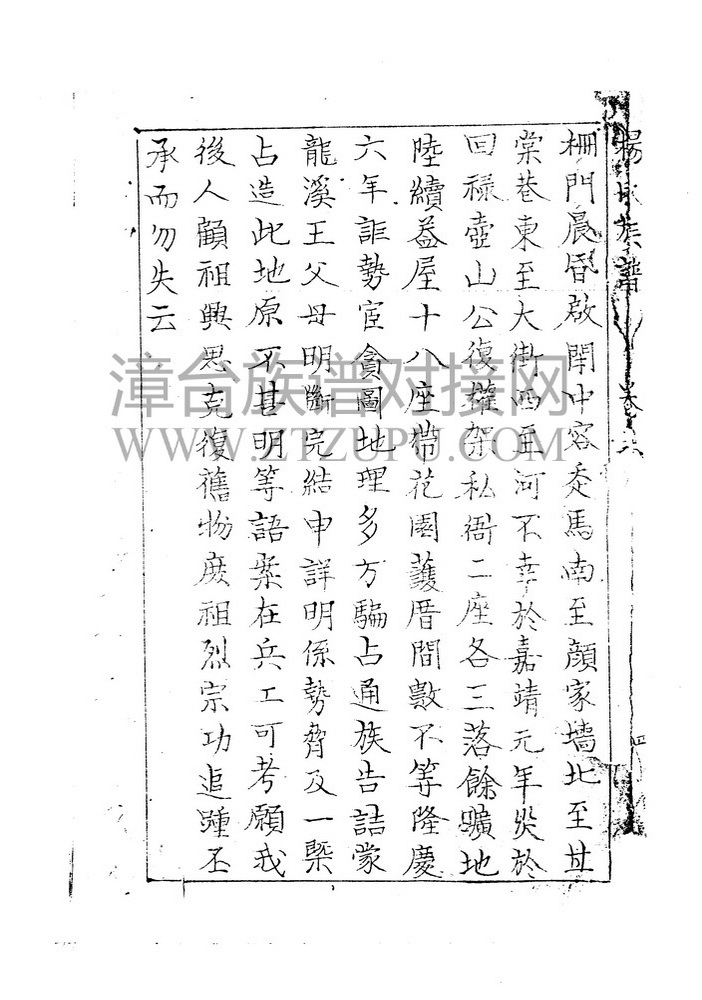 楊氏族譜 卷六
柵門晨昏啟閉中容走馬南至顏家墻北至甘
棠巷東至大街西至河不幸於嘉靖元年災於
回祿壺山公復權架私衙二座各三落餘曠地
陸續葢屋十八座帶花園護厝間數不等隆慶
六年詎勢宦貪圖地理多方騙占通族告詰蒙
龍溪王父母明斷完結申詳明係勢脅及一槩
占造此地原不甚明等語案在兵工可考願我
後人顧祖興思克復舊物庶祖烈宗功追踵丕
承而勿失云
漳台族谱对接网
WWW.ZTZUPU.COM